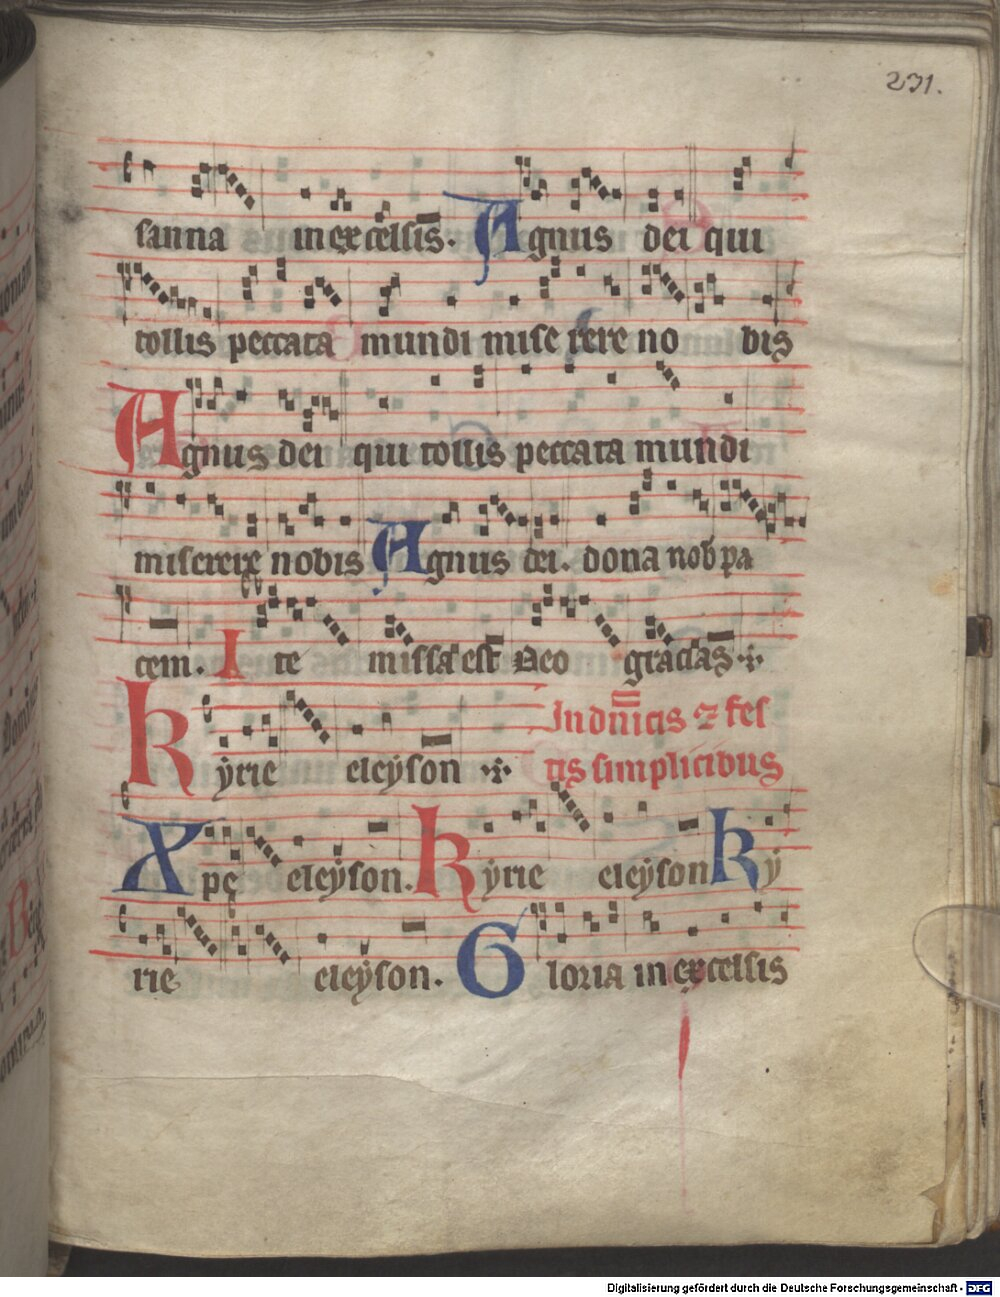 231.
sanna in excelsis. Agnus dei qui
tollis peccata mundi mise rere no bis
Agnus dei qui tollis peccata mundi
miserere nobis Agnus dei. dona nob pa
cem. Ite missa est Deo gracias
Kyrie eleyson In dnicis ⁊ fes
tis simplicibus
Xpe eleyson. Kyrie eleyson Ky
rie eleyson. Gloria in excelsis
Digitalisierung gefördert durch die Deutsche Forschungsgemeinschaft - DFG